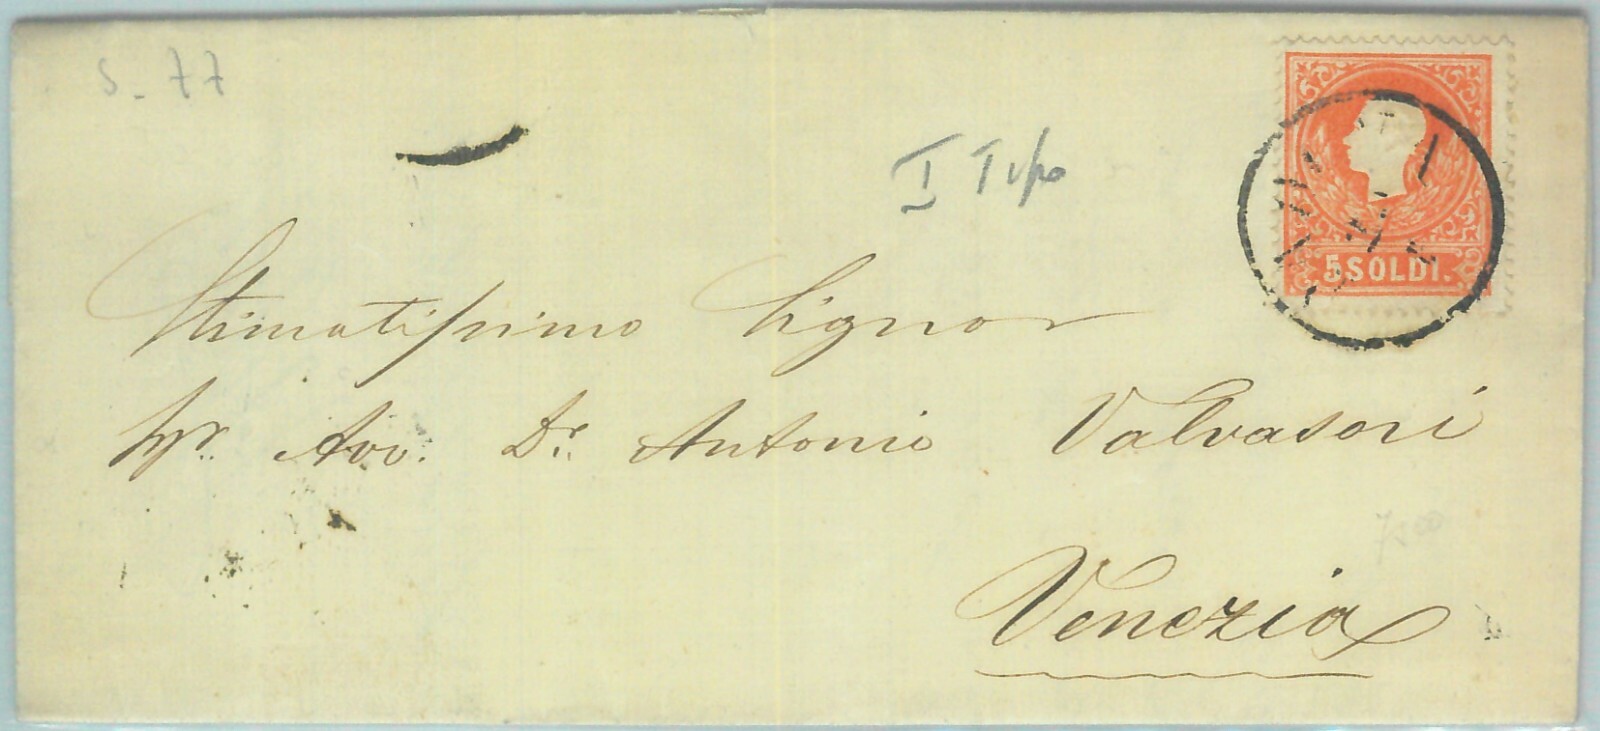 S-77
I Tipo
5 SOLDI.
Stimatissimo Signor
Avv. Dr. Antonio Valvasori
7500
Venezia